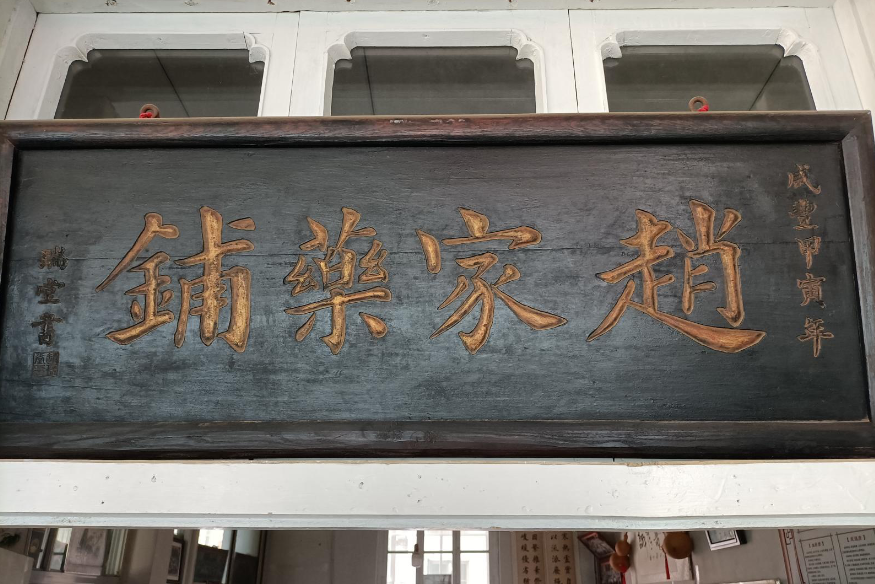 咸豐甲寅年
趙家藥鋪
瑞堂書